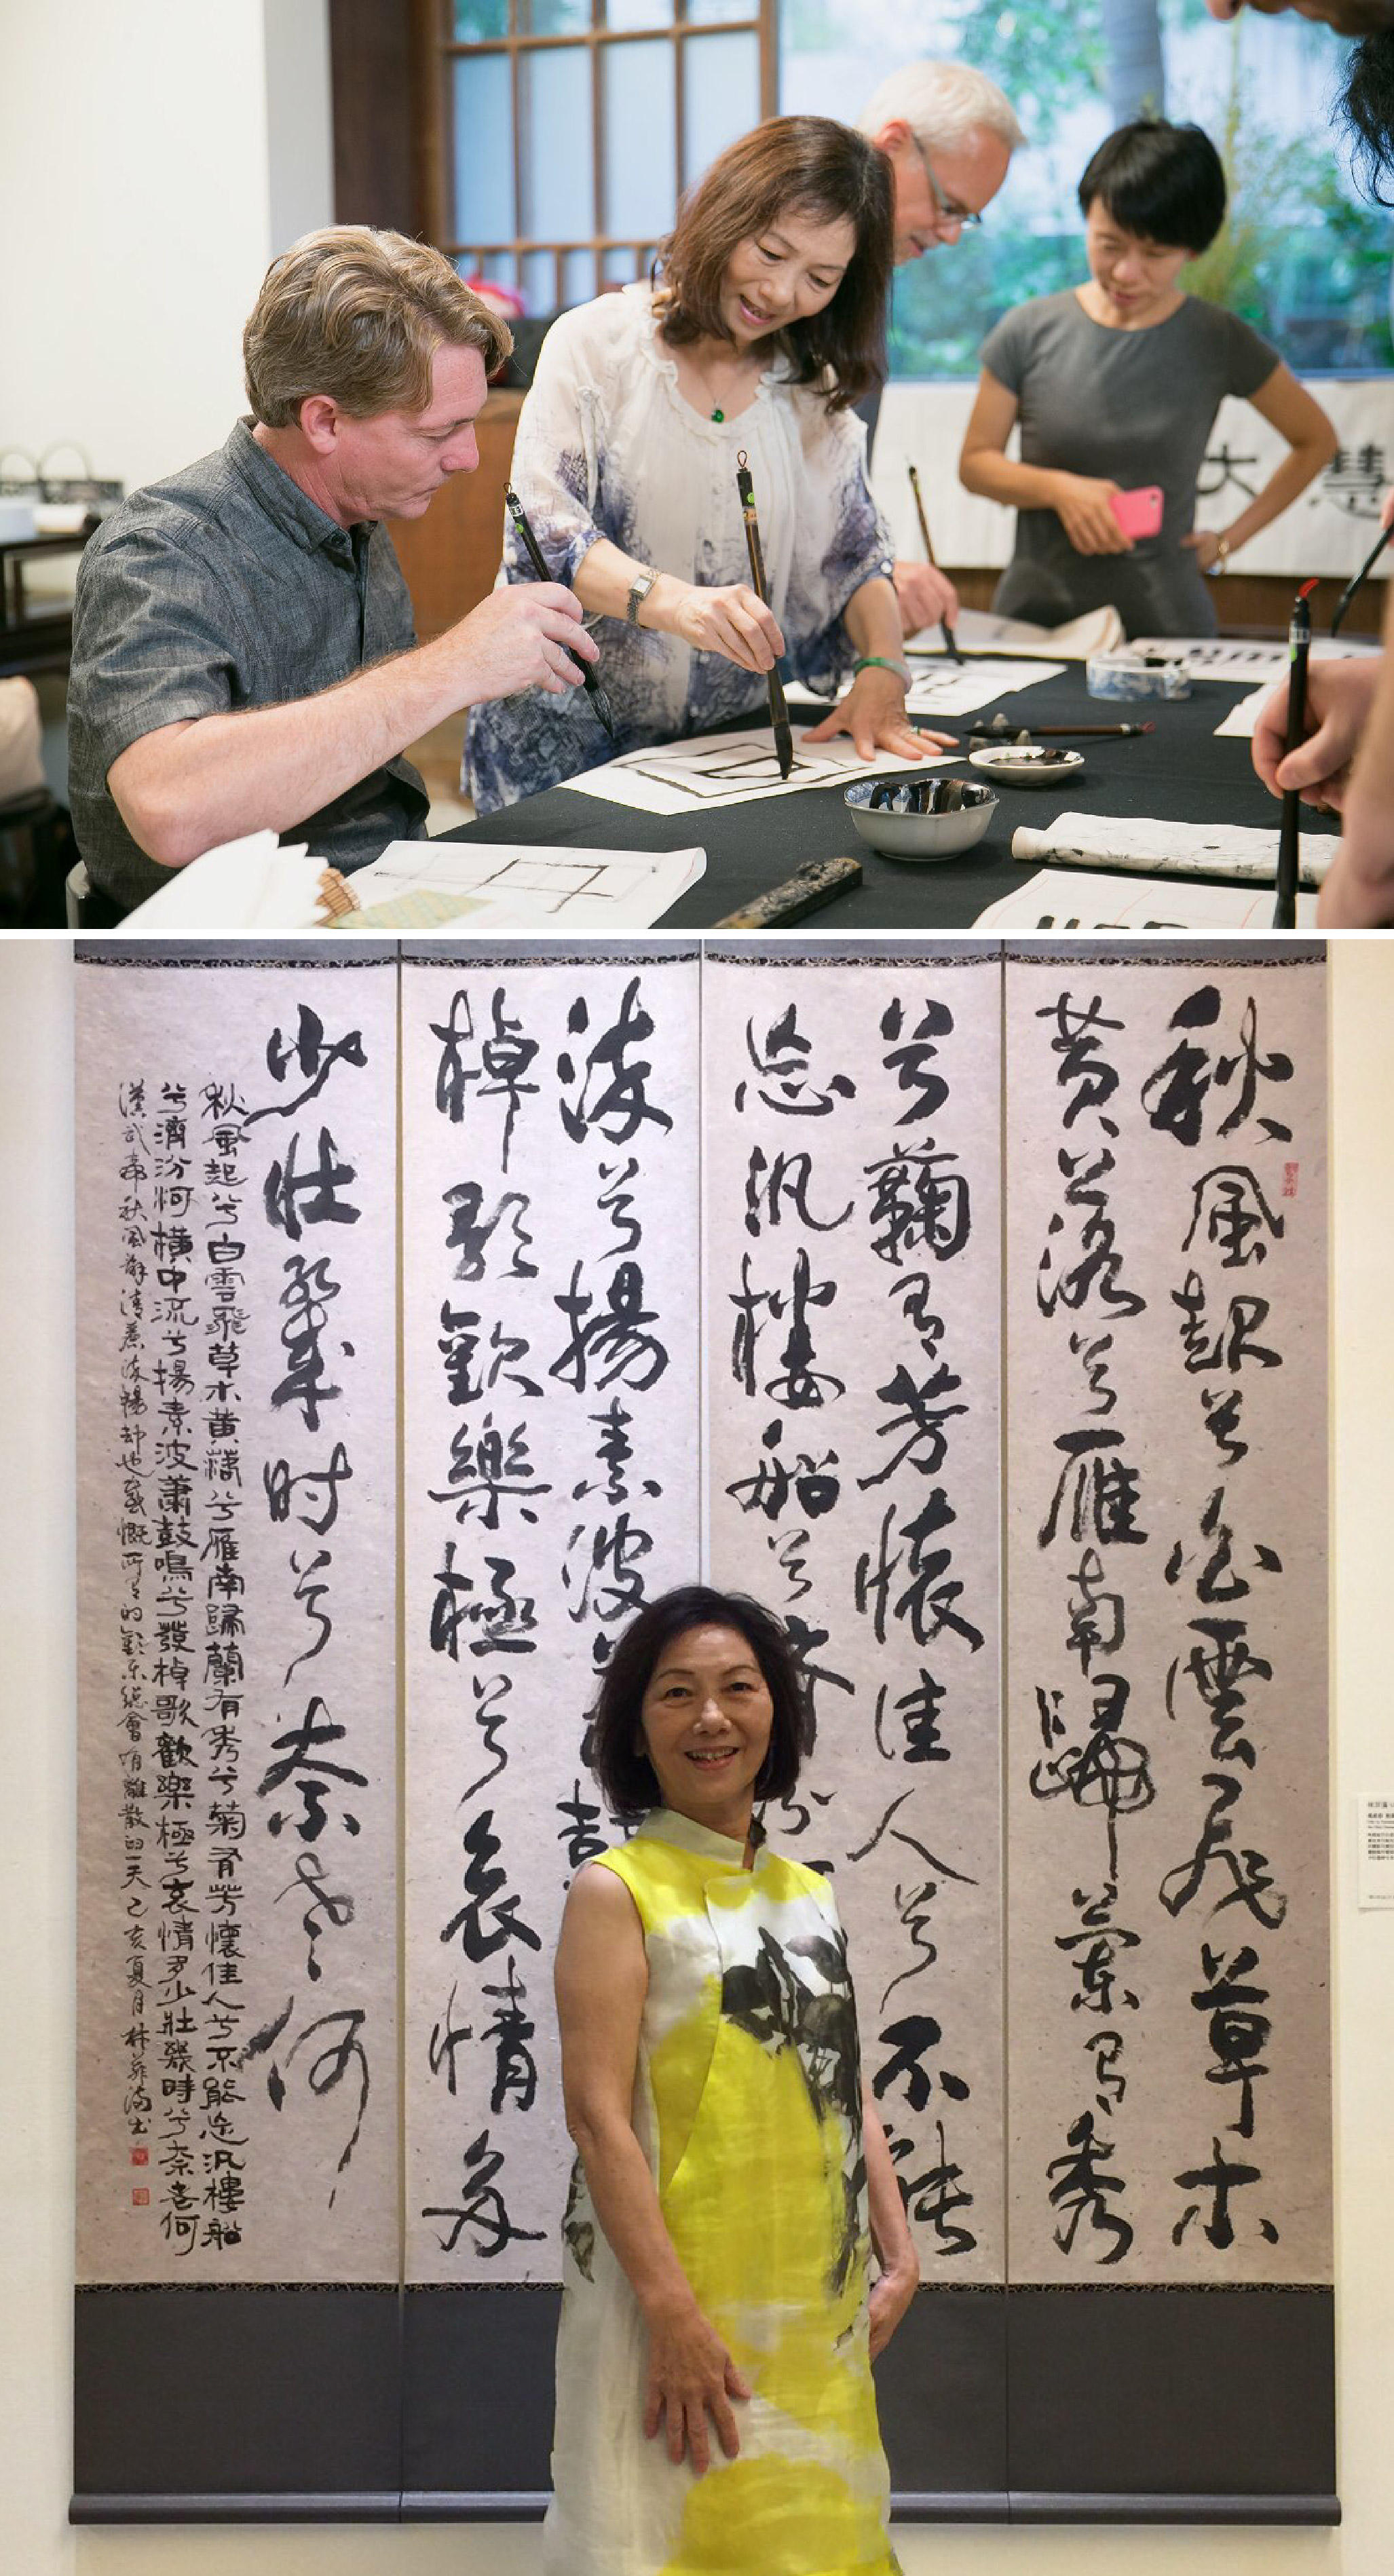 大慧
秋風起兮白雲飛草木
黃落兮雁南歸蘭有秀
兮蘜有芳懷佳人兮不能
忘汎樓船兮濟汾
流兮揚素波鼓
棹歌歡樂極兮哀情多
少壯幾时兮奈老何
秋風起兮白雲飛草木黃落兮雁南歸蘭有秀兮菊有芳懷佳人兮不能忘汎樓船
兮濟汾河橫中流兮揚素波簫鼓鳴兮發棹歌歡樂極兮哀情多少壯幾時兮奈老何
漢武帝秋風辭淒美流暢却也感慨所有的歡樂總會有離散的一天己亥夏月林